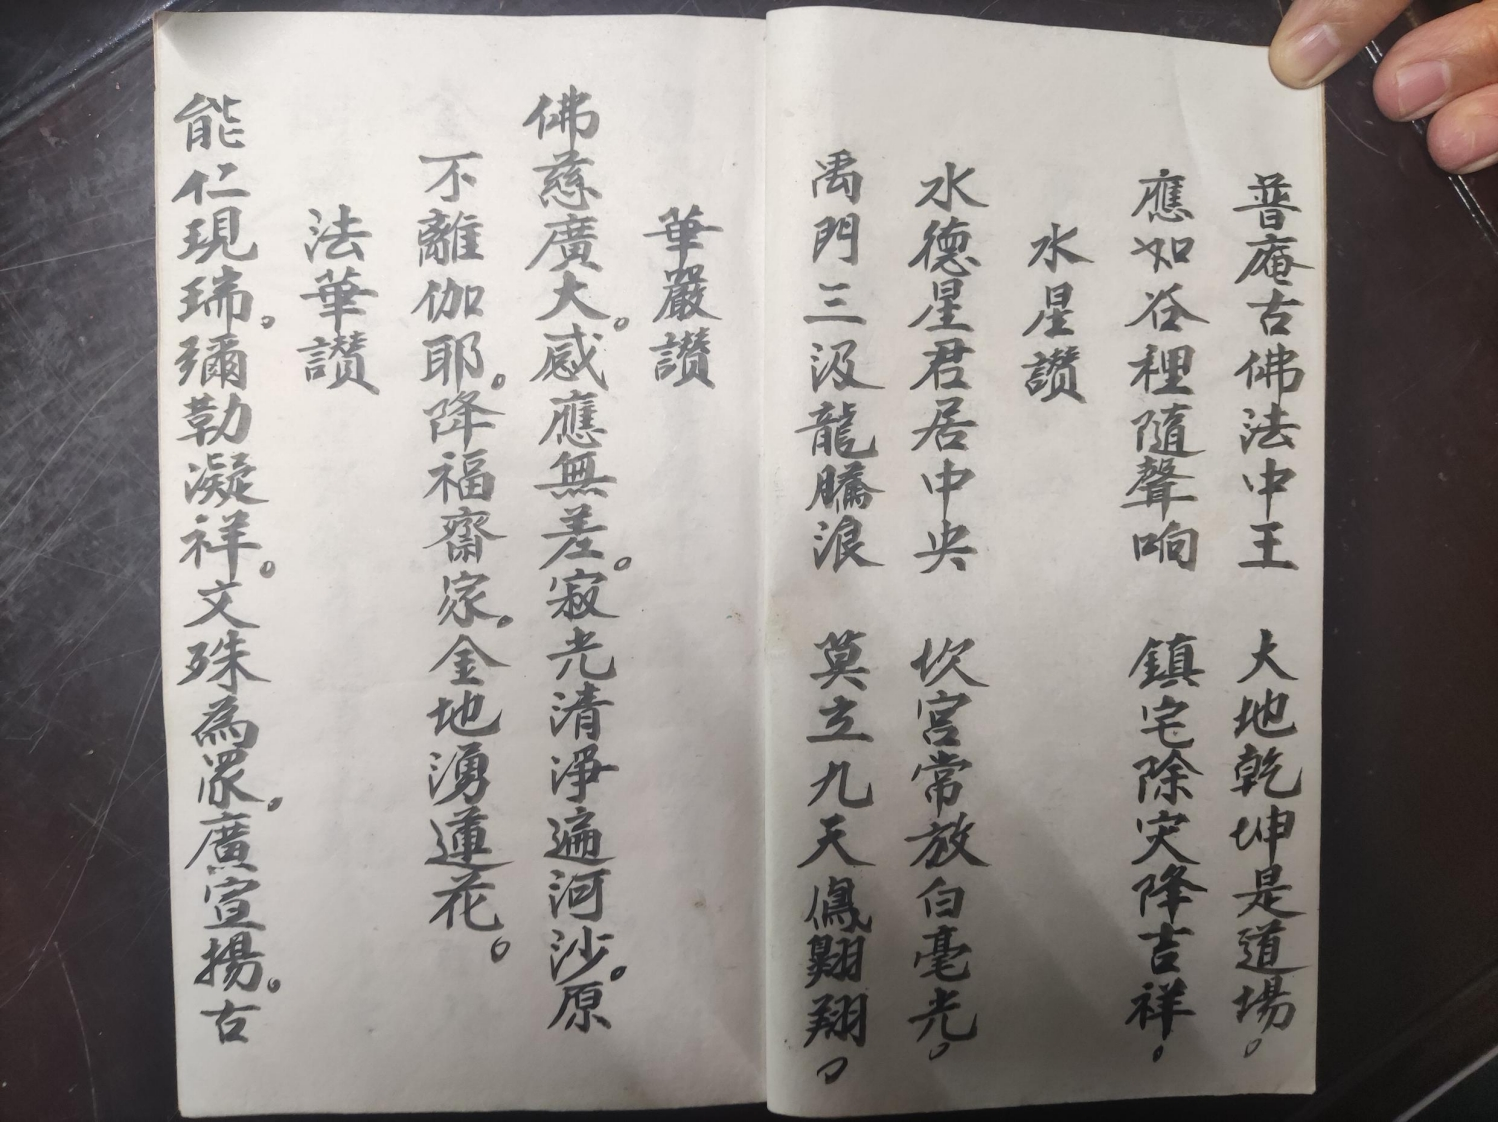 普庵古佛法中王　大地乾坤是道場。
應如谷裡隨聲响　鎮宅除灾降吉祥。
水星讚
水德星君居中央　坎宮常放白毫光。
禹門三汲龍騰浪　莫立九天鳳翺翔。
華嚴讚
佛慈廣大。感應無差。寂光清淨遍河沙。原
不離伽耶。降福齋家。金地湧蓮花。
法華讚
能仁現瑞。彌勒凝祥。文殊為眾。廣宣揚。古